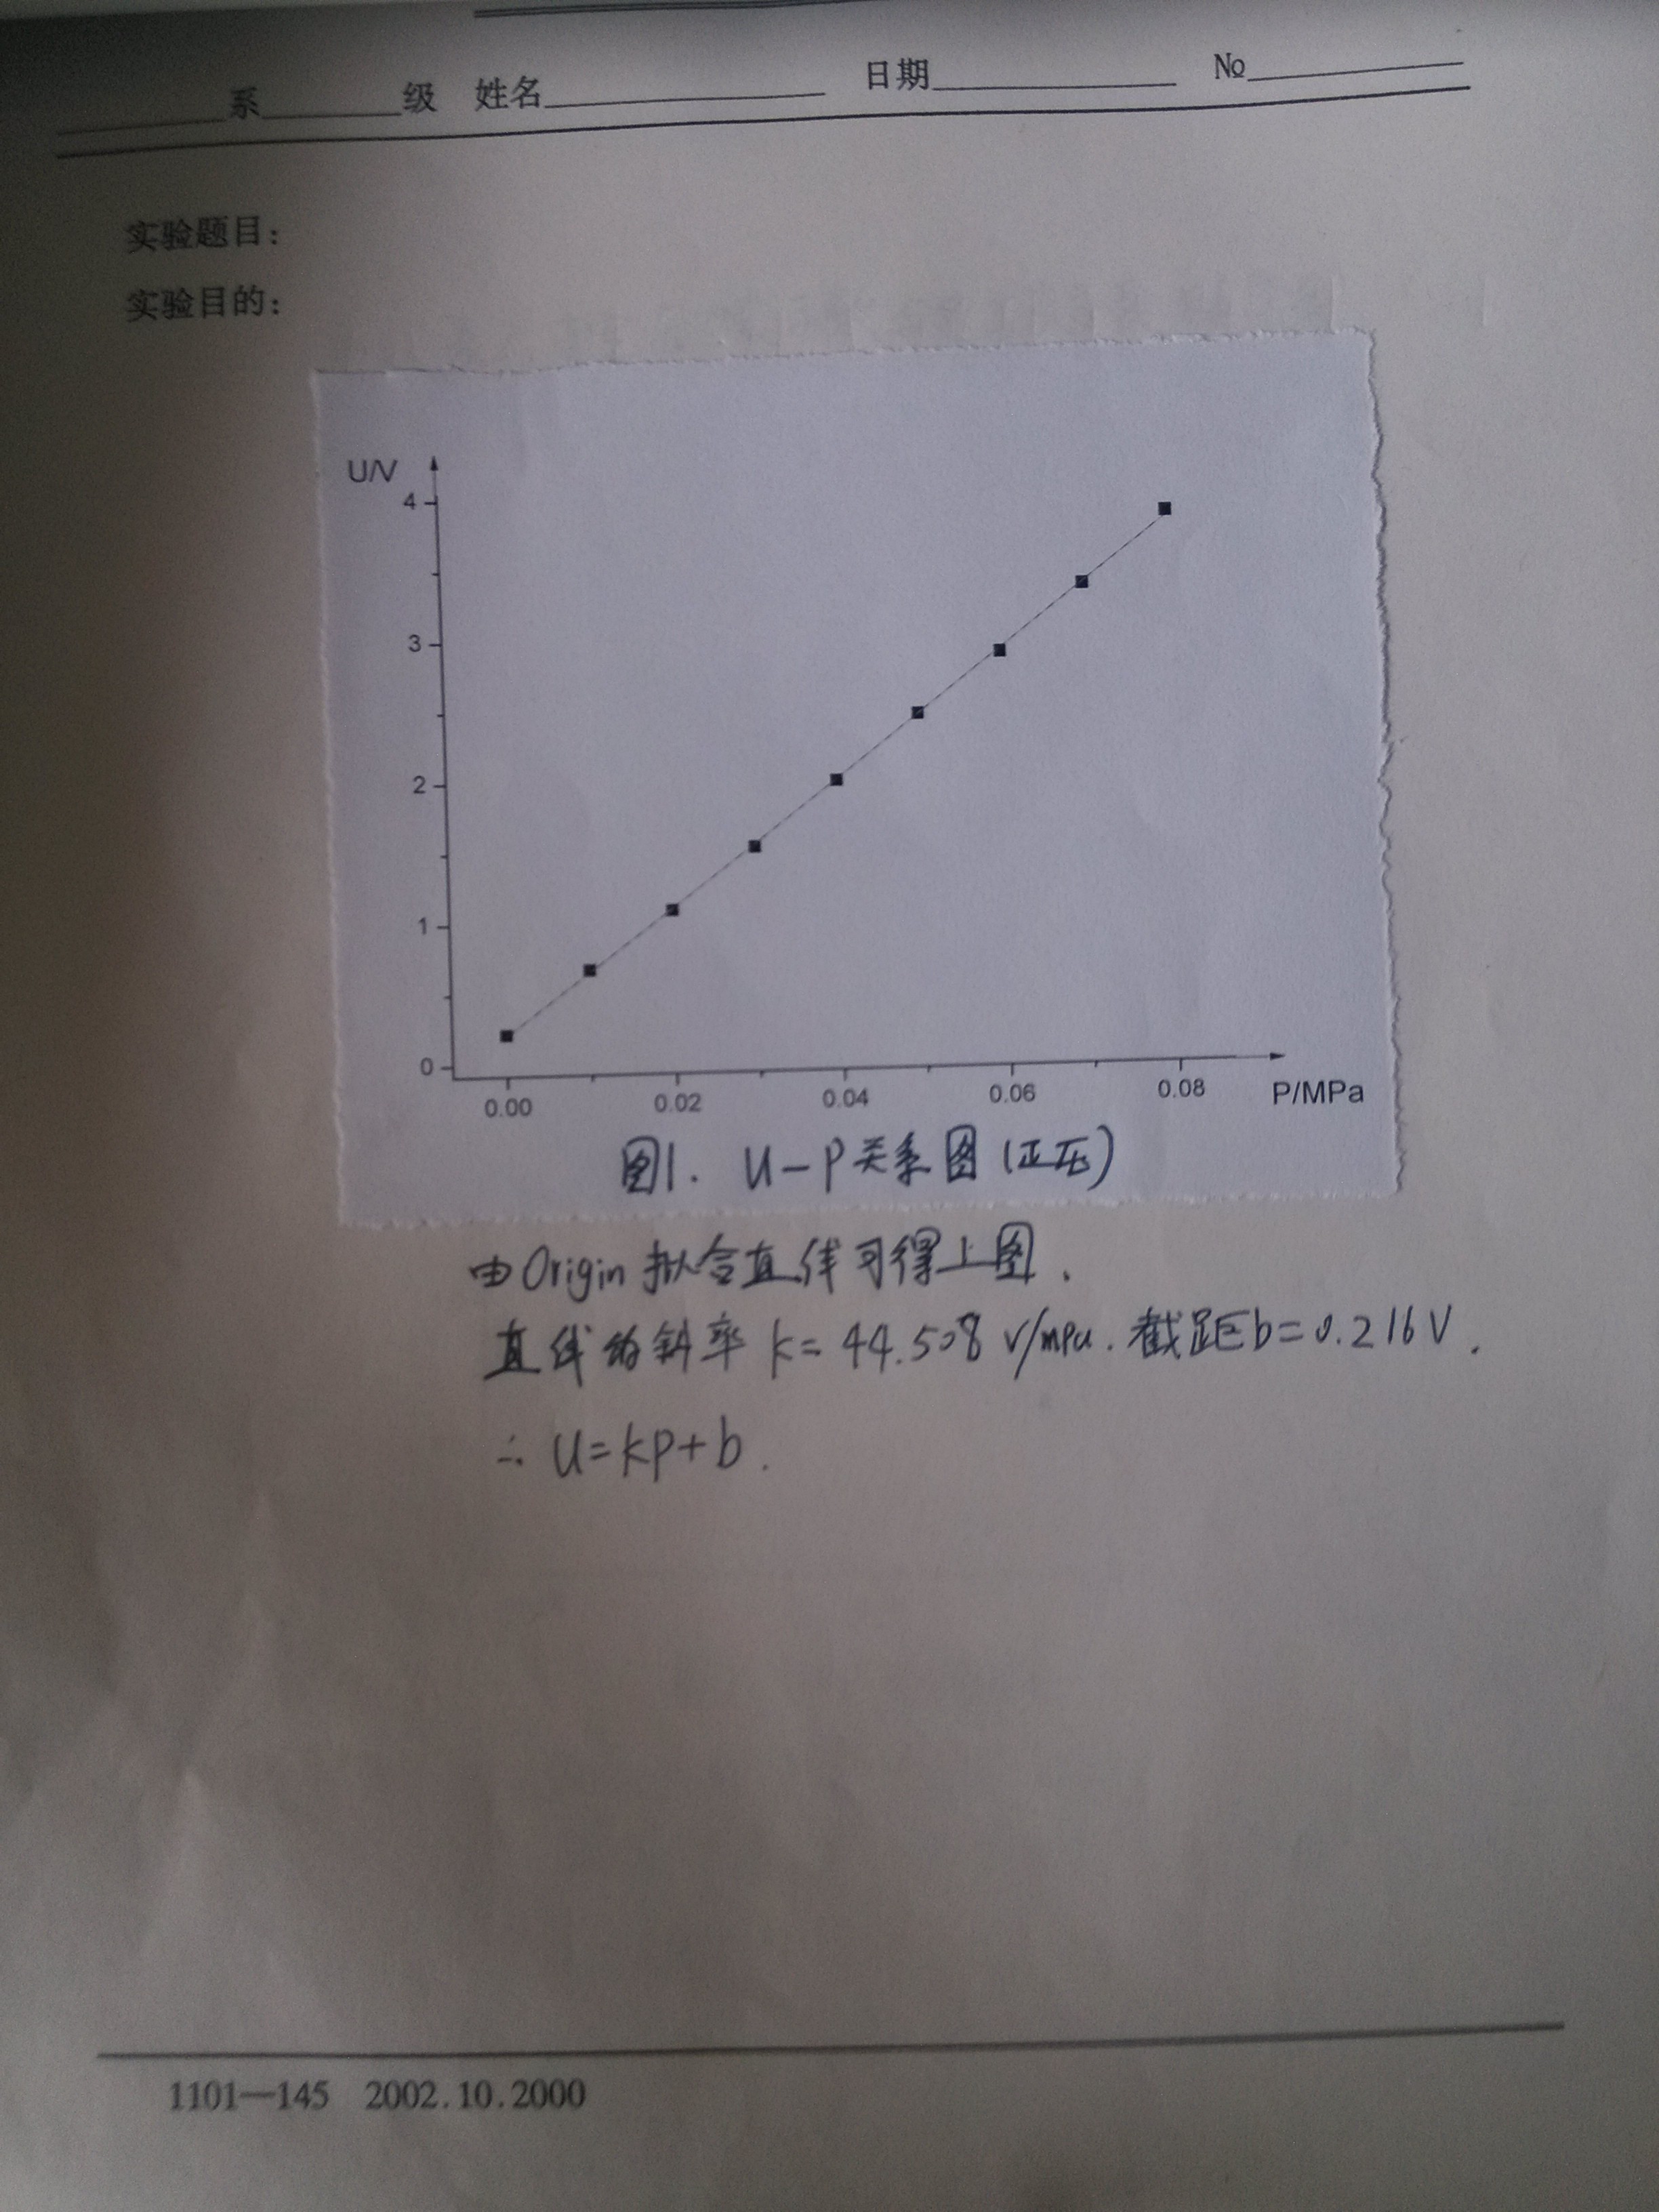 系 级 姓名 日期 №
实验题目:
实验目的:
U/V
4
3
2
1
0
0.00 0.02 0.04 0.06 0.08 P/MPa
图1. U-P关系图(正压)
由Origin拟合直线可得上图.
直线的斜率 k=44.508 V/mpa. 截距b=0.216V.
∴ U=kp+b.
1101—145 2002.10.2000